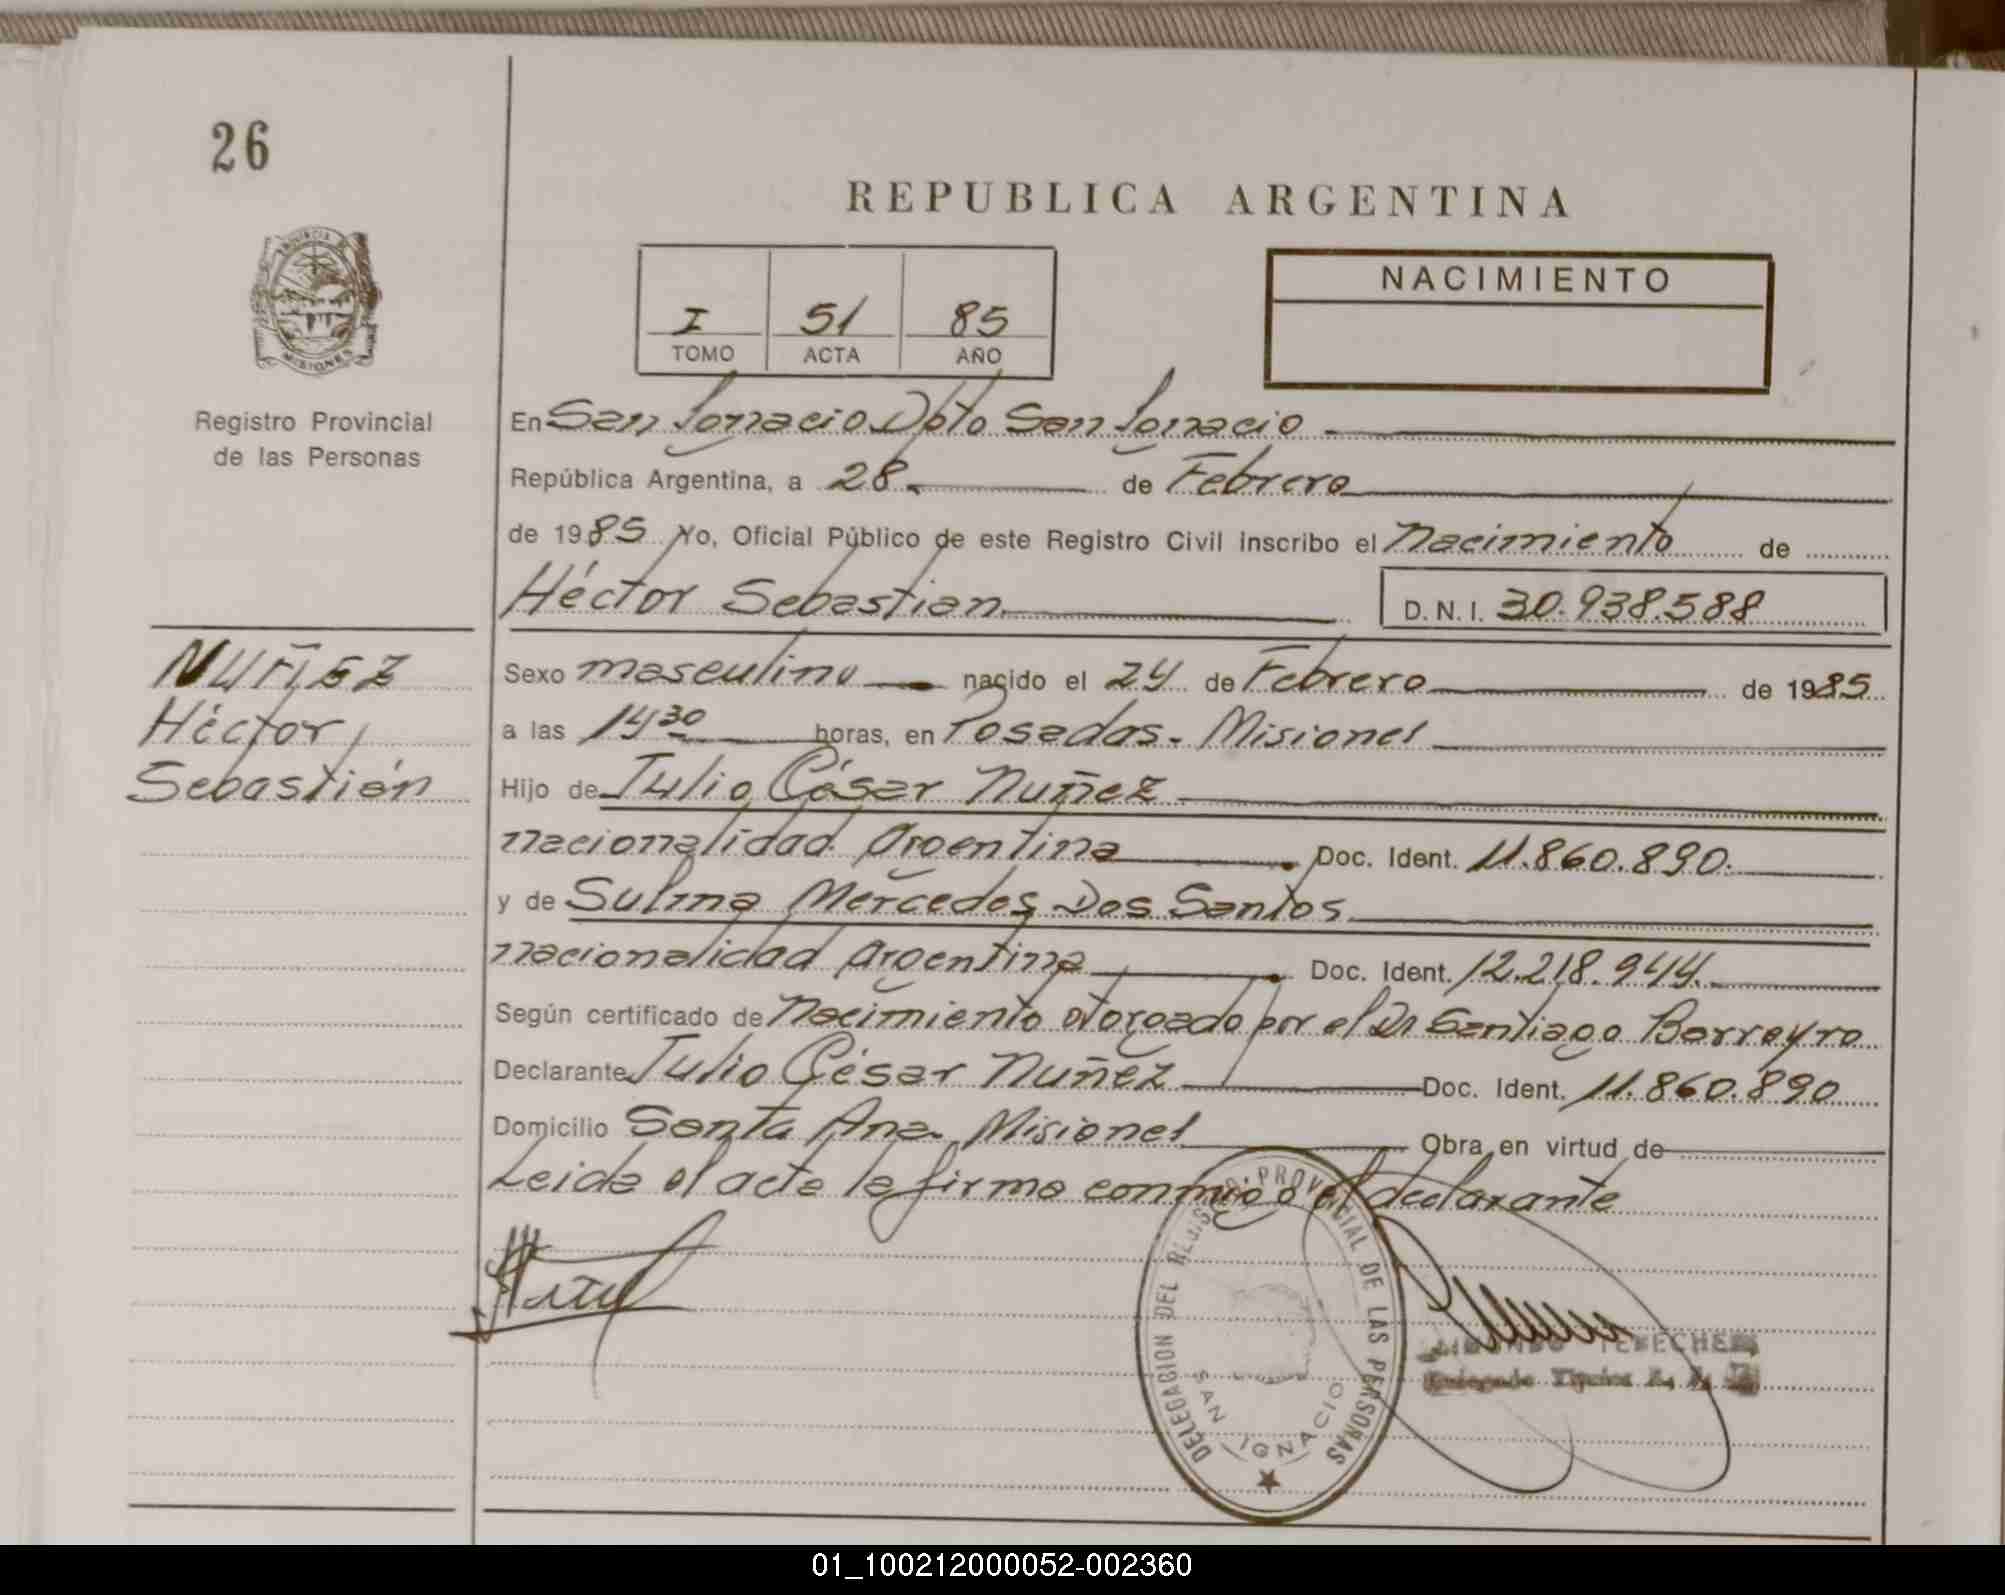 26
REPUBLICA ARGENTINA
NACIMIENTO
I 51 85
TOMO ACTA AÑO
PROVINCIA DE
MISIONES
Registro Provincial
de las Personas
En San Ignacio Dpto San Ignacio
República Argentina, a 28 de Febrero
de 1985 Yo, Oficial Público de este Registro Civil inscribo el Nacimiento de
Héctor Sebastian D.N.I. 30.938.588
NUÑEZ
Héctor
Sebastián
Sexo masculino nacido el 24 de Febrero de 1985
a las 14 30 horas, en Posadas - Misiones
Hijo de Julio César Nuñez
nacionalidad Argentina Doc. Ident. 11.860.890.
y de Sulma Mercedes Dos Santos
nacionalidad Argentina Doc. Ident. 12.218.944.
Según certificado de Nacimiento otorgado por el Dr Santiago Barreyro
Declarante Julio César Nuñez Doc. Ident. 11.860.890
Domicilio Santa Ana - Misiones Obra en virtud de
Leida el acta la firma conmigo el declarante
DELEGACION DEL REGISTRO PROVINCIAL DE LAS PERSONAS
SAN IGNACIO
01_100212000052-002360